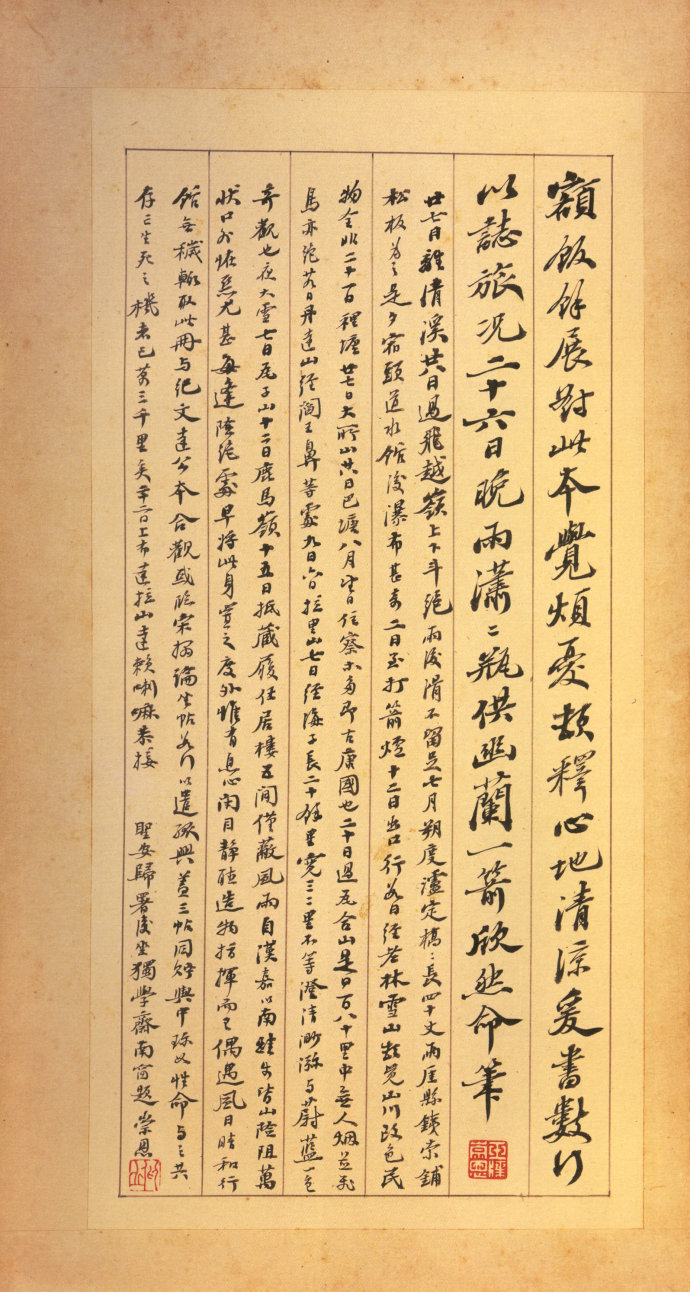 額飯餘展對此本覺煩憂頓釋心地清涼爰書數行
以誌旅况二十六日晚雨瀟〻瓶供幽蘭一箭欣然命筆
廿七日離清溪廿八日過飛越嶺上下斗絕雨後滑不留足七月朔度瀘定橋〻長四十丈兩厓縣鐵索鋪
松板為之是夕宿頭道水館後瀑布甚奇二日至打箭爐十二日出口行 日經 林雪山 覺山川改色民
物全非二十 百裡塘廿七日大所山廿八日巴塘八月 日住察木多即古康國也二十日過瓦合山是日百八十里中無人烟並飛
鳥亦絕 日丹達山經閻王鼻等處九日 拉里山七日經海子長二十餘里寬三二里不等澄清渺瀰與蔚藍一色
奇觀也夜大雪七日瓦子山十二日鹿馬嶺十五日抵藏履任居樓五間僅蔽風雨自漢嘉以南 皆山險阻萬
狀口外惟 尤甚每逢險絕處早將此身置之度外惟有息心閉目靜聽造物指揮而已偶遇風日晴和行
館無穢輒取此冊與紀文達公本合觀或臨宋搨論坐帖 以遣孤興蓋三帖同 與中珎之性命與之共
存亡生死之機者已萬三千里矣 上布達拉山達賴喇嘛恭接 聖安歸署後坐獨學齋南窗題 崇恩